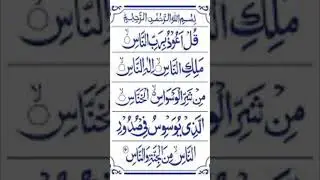 بِسْمِ اللهِ الرَّحْمٰنِ الرَّحِيْمِ
قُلْ اَعُوْذُ بِرَبِّ النَّاسِ
مَلِكِ النَّاسِ اِلٰهِ النَّاسِ
مِنْ شَرِّ الْوَسْوَاسِ الْخَنَّاسِ
الَّذِیْ یُوَسْوِسُ فِیْ صُدُوْرِ
النَّاسِ مِنَ الْجِنَّةِ وَالنَّاسِ